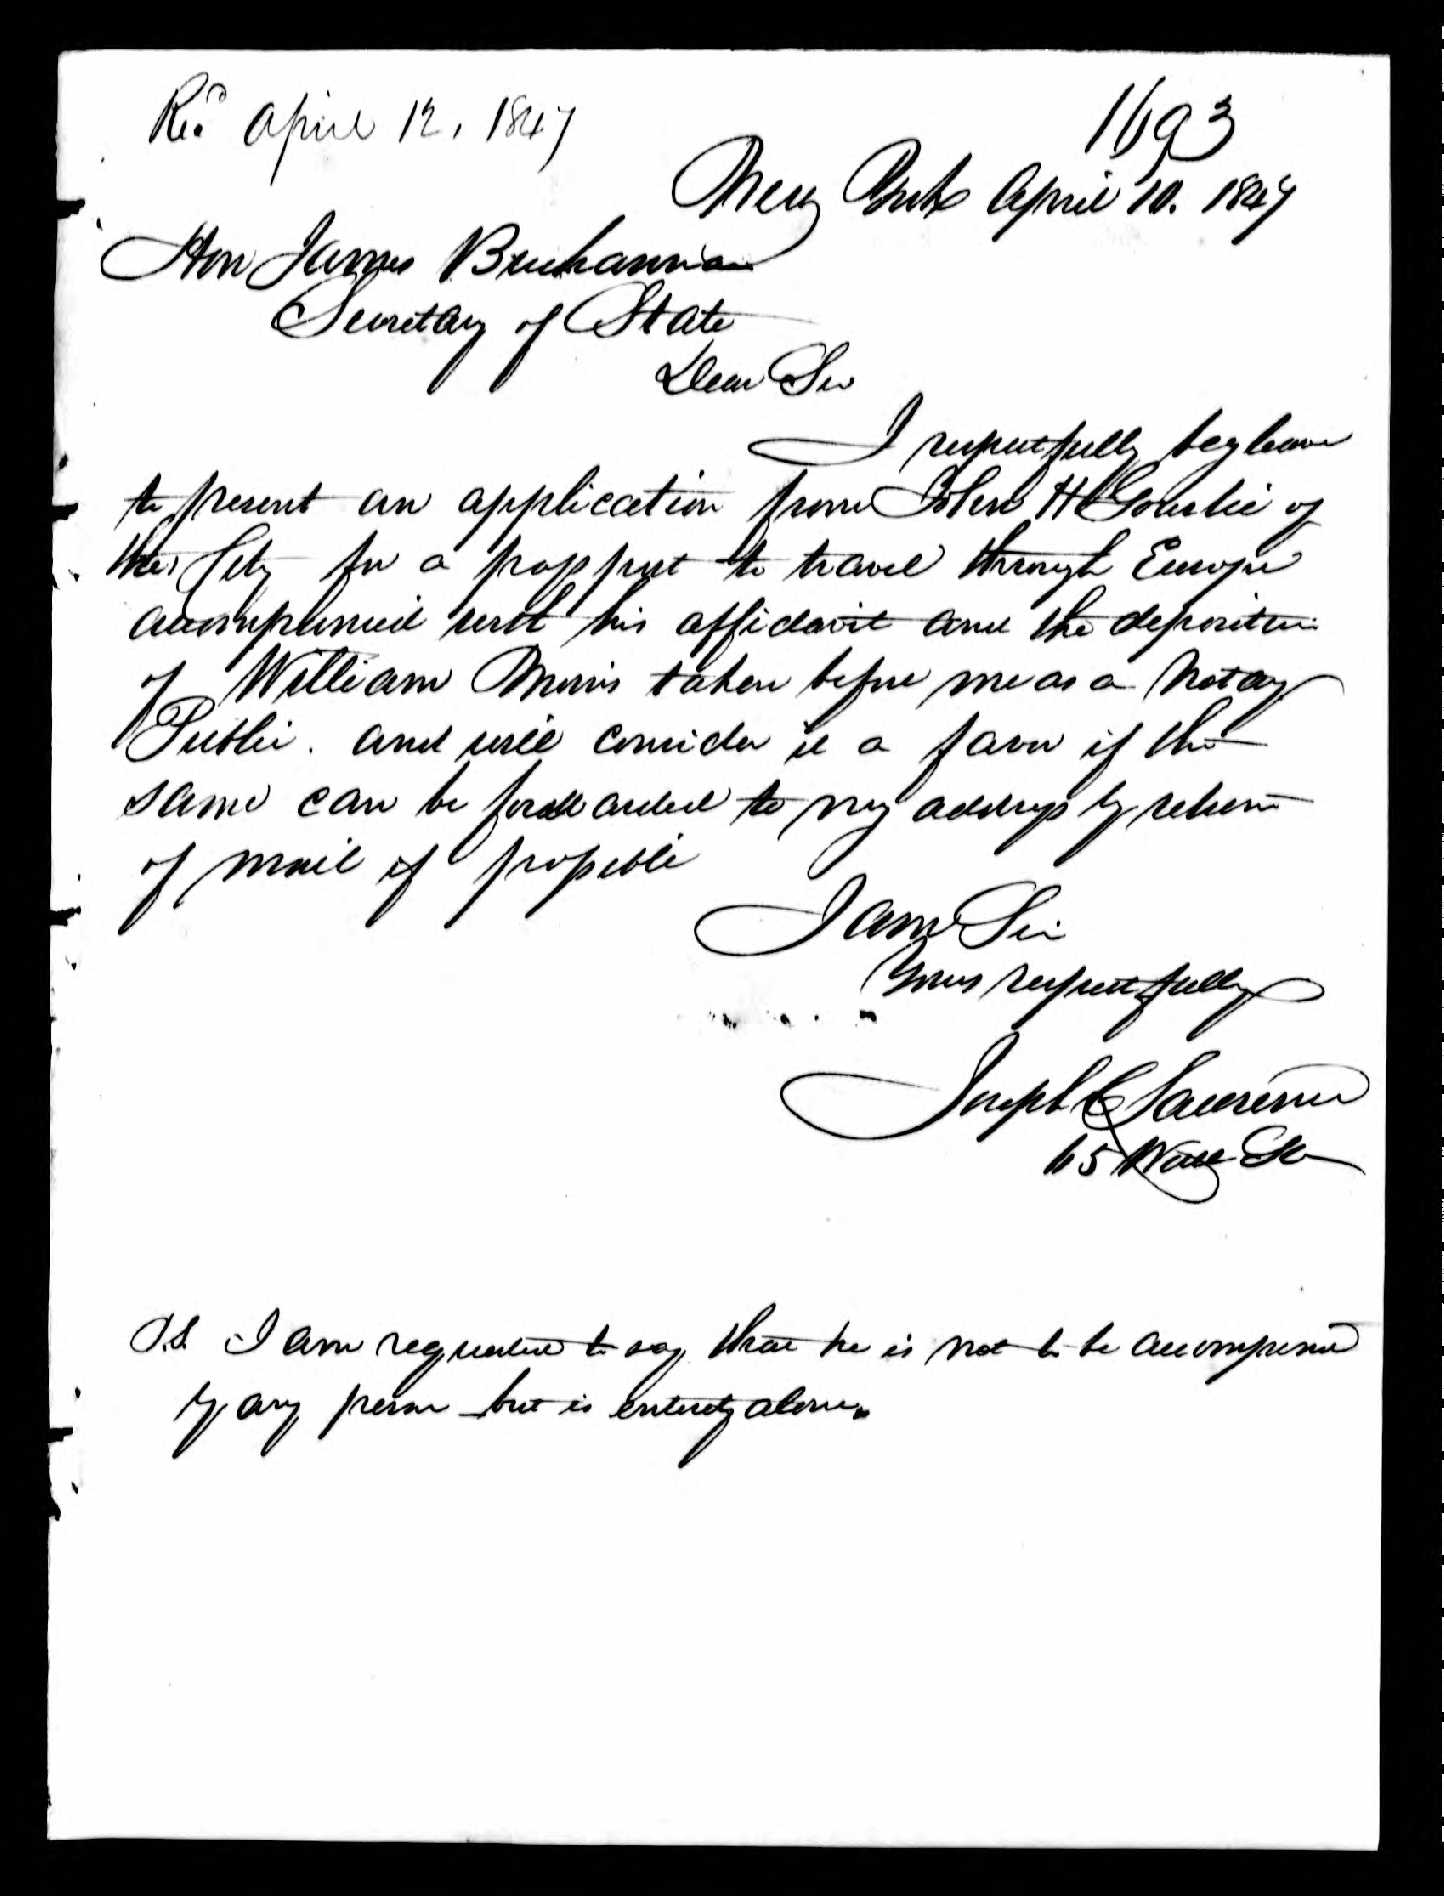 Recd April 12, 1847
1693
New York April 10. 1847
Hon James Buchannan
Secretary of State
Dear Sir
I respectfully beg leave
to present an application from John H Gourlie of
this City for a passport to travel through Europe
accompanied with his affidavit and the deposition
of William Morris taken before me as a Notary
Public. and will consider it a favor if the
same can be forwarded to my address by return
of mail if possible
I am Sir
Yours respectfully
Joseph C Lawrence
65 Wall St
P.S. I am requested to say that he is not to be accompanied
by any person but is entirely alone.